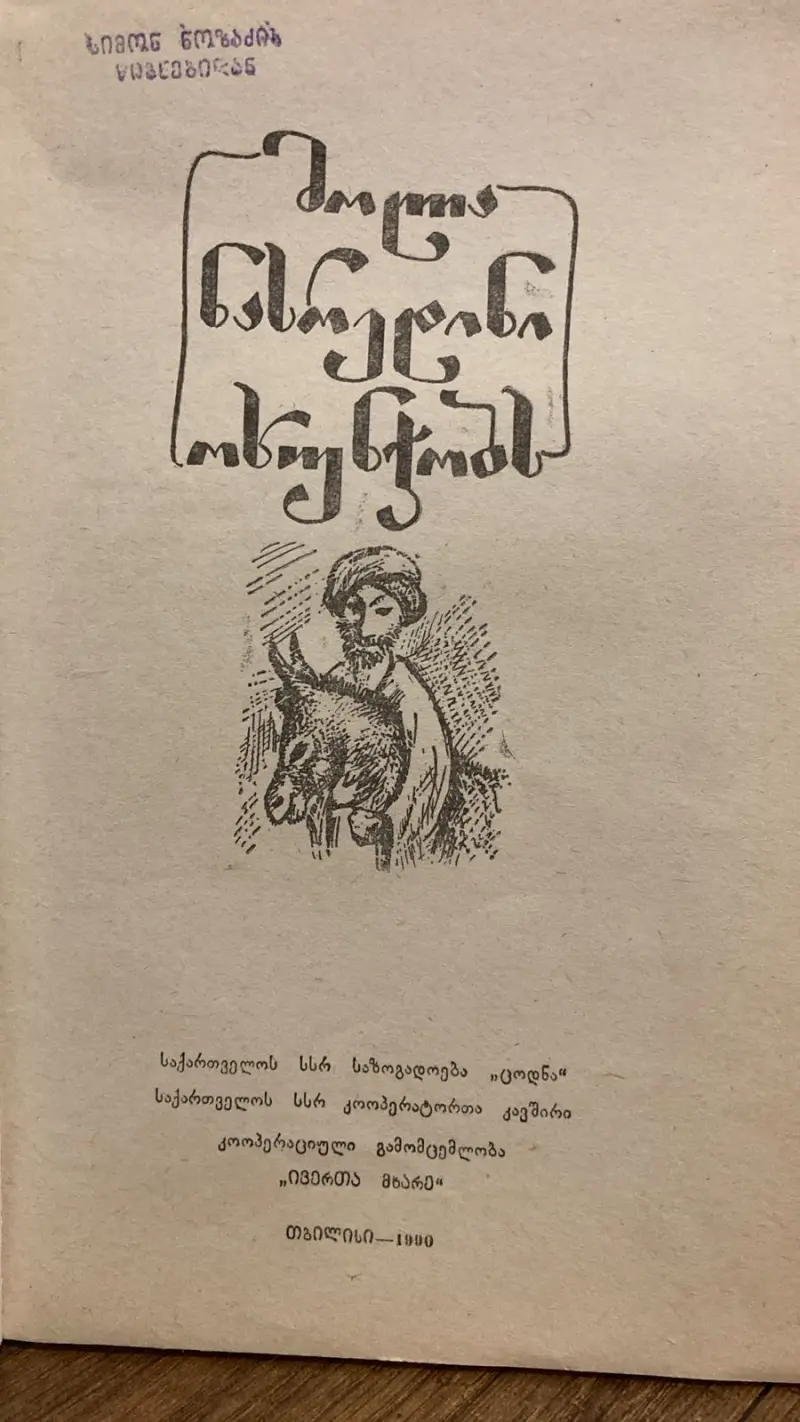 სიმონ ნოზაძის
წიგნებიდან
მოლა
ნასრედინი
ოხუნჯობს
საქართველოს სსრ საზოგადოება „ცოდნა“
საქართველოს სსრ კოოპერატორთა კავშირი
კოოპერაციული გამომცემლობა
„ივერთა მხარე“
თბილისი—1990